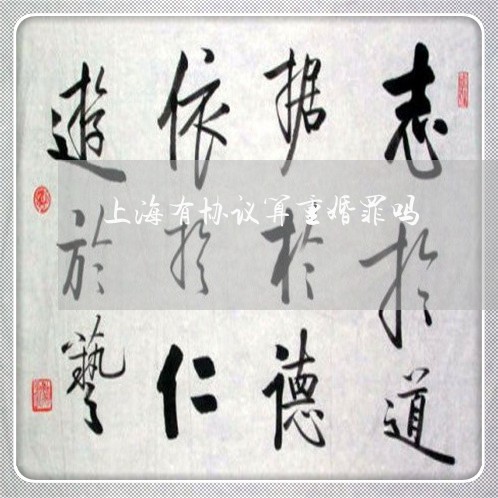 志於道
据於德
依於仁
遊於藝
上海有协议算重婚罪吗